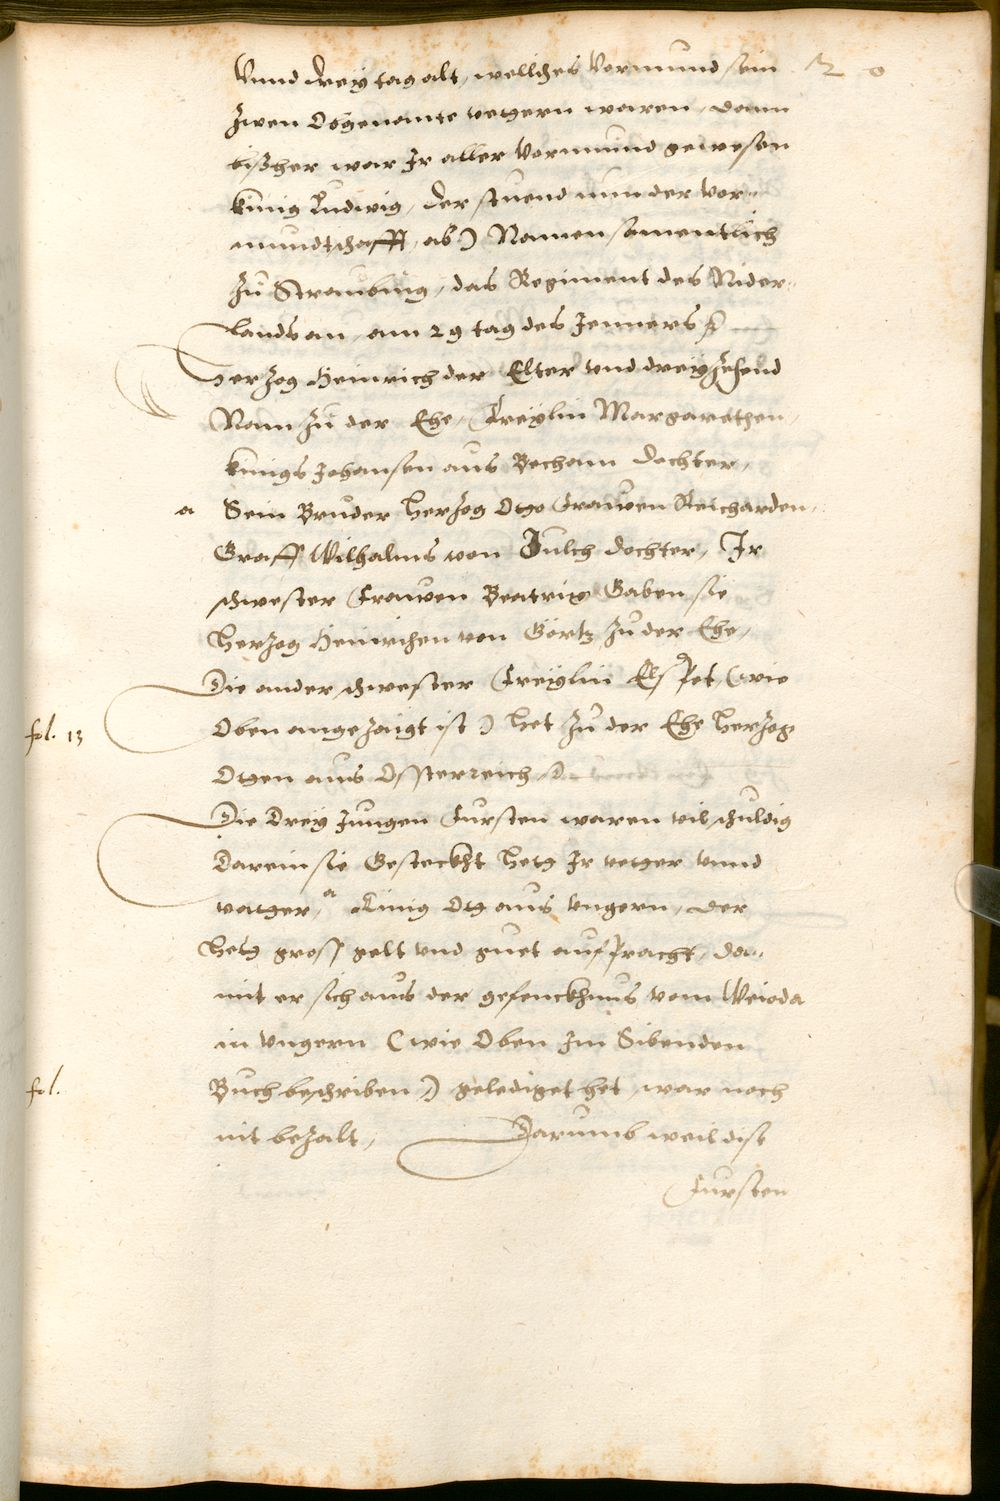 Vnnd drey tag alt, welliches Vormund sein
zwen Obgenante vetern waren, dann
bißher war Jr aller Vormund gewesen
künig Ludwig, der stuend nun der Vor-
mundtschafft, ab) Namen samentlich
zu Straubing, das Regiment des Nider-
lands an, am 29 tag des Jenners
Herzog Heinrich der Elter vnd dreyzehend
Nam zu der Ehe, Freylin Margarethen,
künigs Johansen aus Becham dochter,
a Sein Bruder Herzog Otho Frauen Reicharden,
Graff Wilhalms von Julch dochter, Jr
schwester Frauen Beatrix Gaben sie
Herzog Heinrichen von Görtz zu der Ehe,
Die ander schwester Freylin Elspet, (wie
fol. 13 Oben angezaigt ist) het zu der Ehe Herzog
Othen aus Össterreich
Die drey Jungen Fursten waren vil schuldig
Darein sie Gesteckht heth Jr vetter vnnd
vatter, a Künig Oth aus Vngern, der
heth gross gelt vnd guet aufpracht, da-
mit er sich aus der gefenckhnus vom Weioda
in Vngern (wie Oben Jm Sibenden
fol. Buch beschriben) gelediget het, war noch
nit bezalt, Darumb weil dise
Fursten